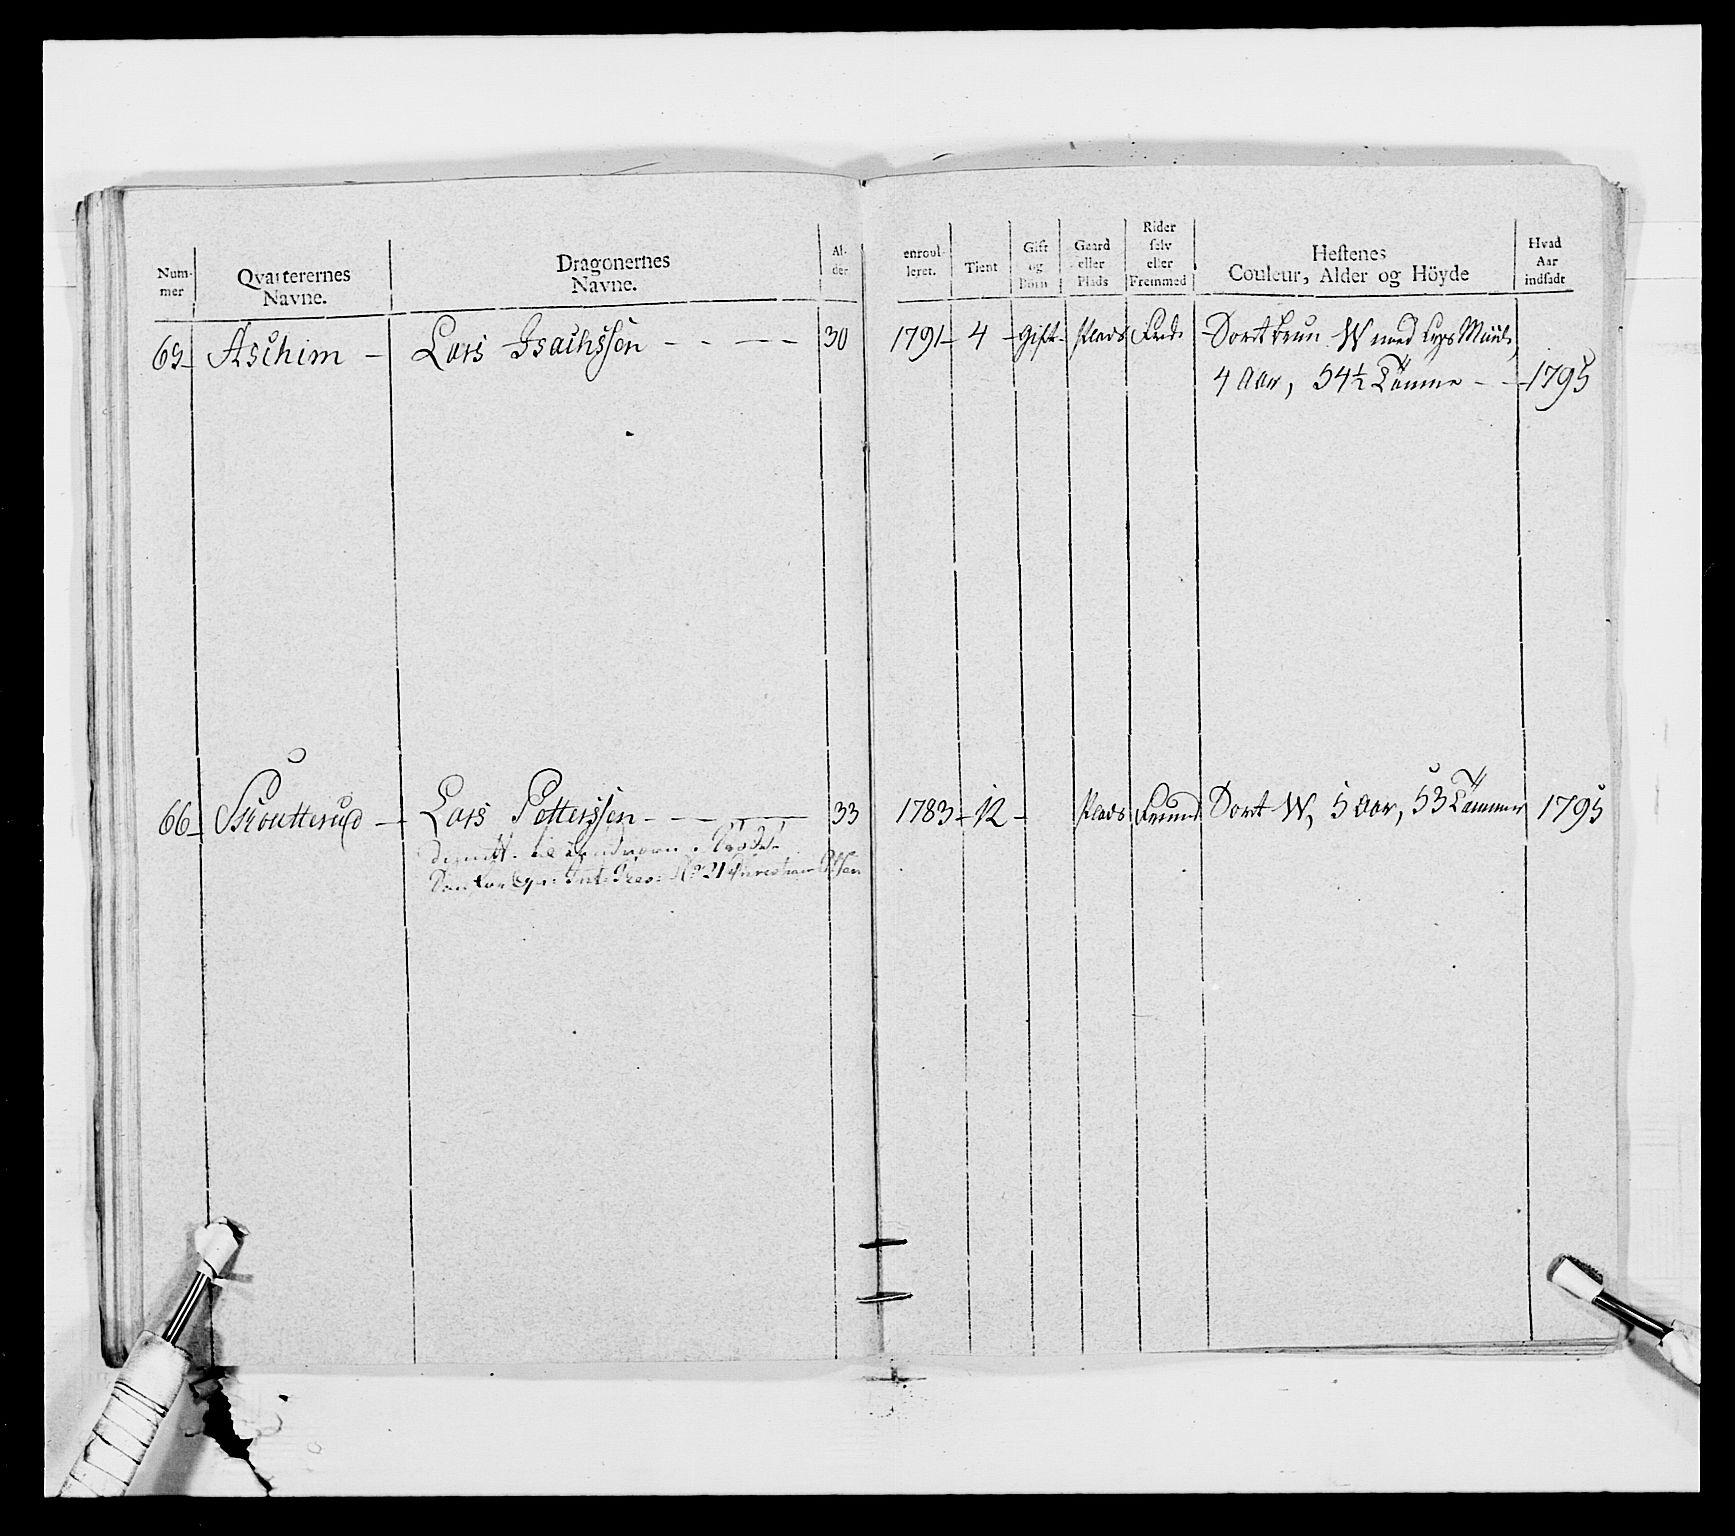 Num-
mer
Qvarterernes
Navne.
Dragonernes
Navne.
Al-
der
enroul-
leret.
Tient
Gift
og
Börn
Gaard
eller
Plads
Rider
selv
eller
Fremmed
Hestenes
Couleur, Alder og Höyde
Hvad
Aar
indsadt
65 Aschim – Lars Isachssen - - - - 30 1791 – 4 – Gift – Plads Frd: Sortbrun W med Lys Muule,
4 Aar, 54½ Tomme - - 1795
66 Lars Petterssen - - - 33 1783 – 12 – Plads Fremd Sort W, 5 Aar, 53 Tommer 1795
Nº 21 Christian